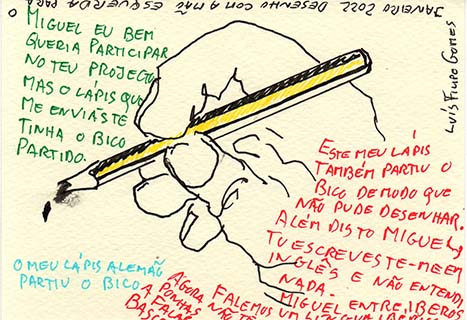 JANEIRO 2022 DESENHO COM A MÃO ESQUERDA PARA O
MIGUEL EU BEM
QUERIA PARTICIPAR
NO TEU PROJECTO
MAS O LÁPIS QUE
ME ENVIÁSTE
TINHA O BICO
PARTIDO.
LUÍS FILIPE GOMES
ESTE MEU LÁPIS
TAMBÉM PARTIU O
BICO DE MODO QUE
NÃO PUDE DESENHAR.
ALÉM DISTO MIGUEL,
TU ESCREVESTE-ME EM
INGLÊS E NÃO ENTENDI
NADA.
MIGUEL ENTRE IBEROS
FALEMOS UM LINGUA
AGORA NÃO TE
PONHAS
A FALAR
O MEU LÁPIS ALEMÃO
PARTIU O BICO